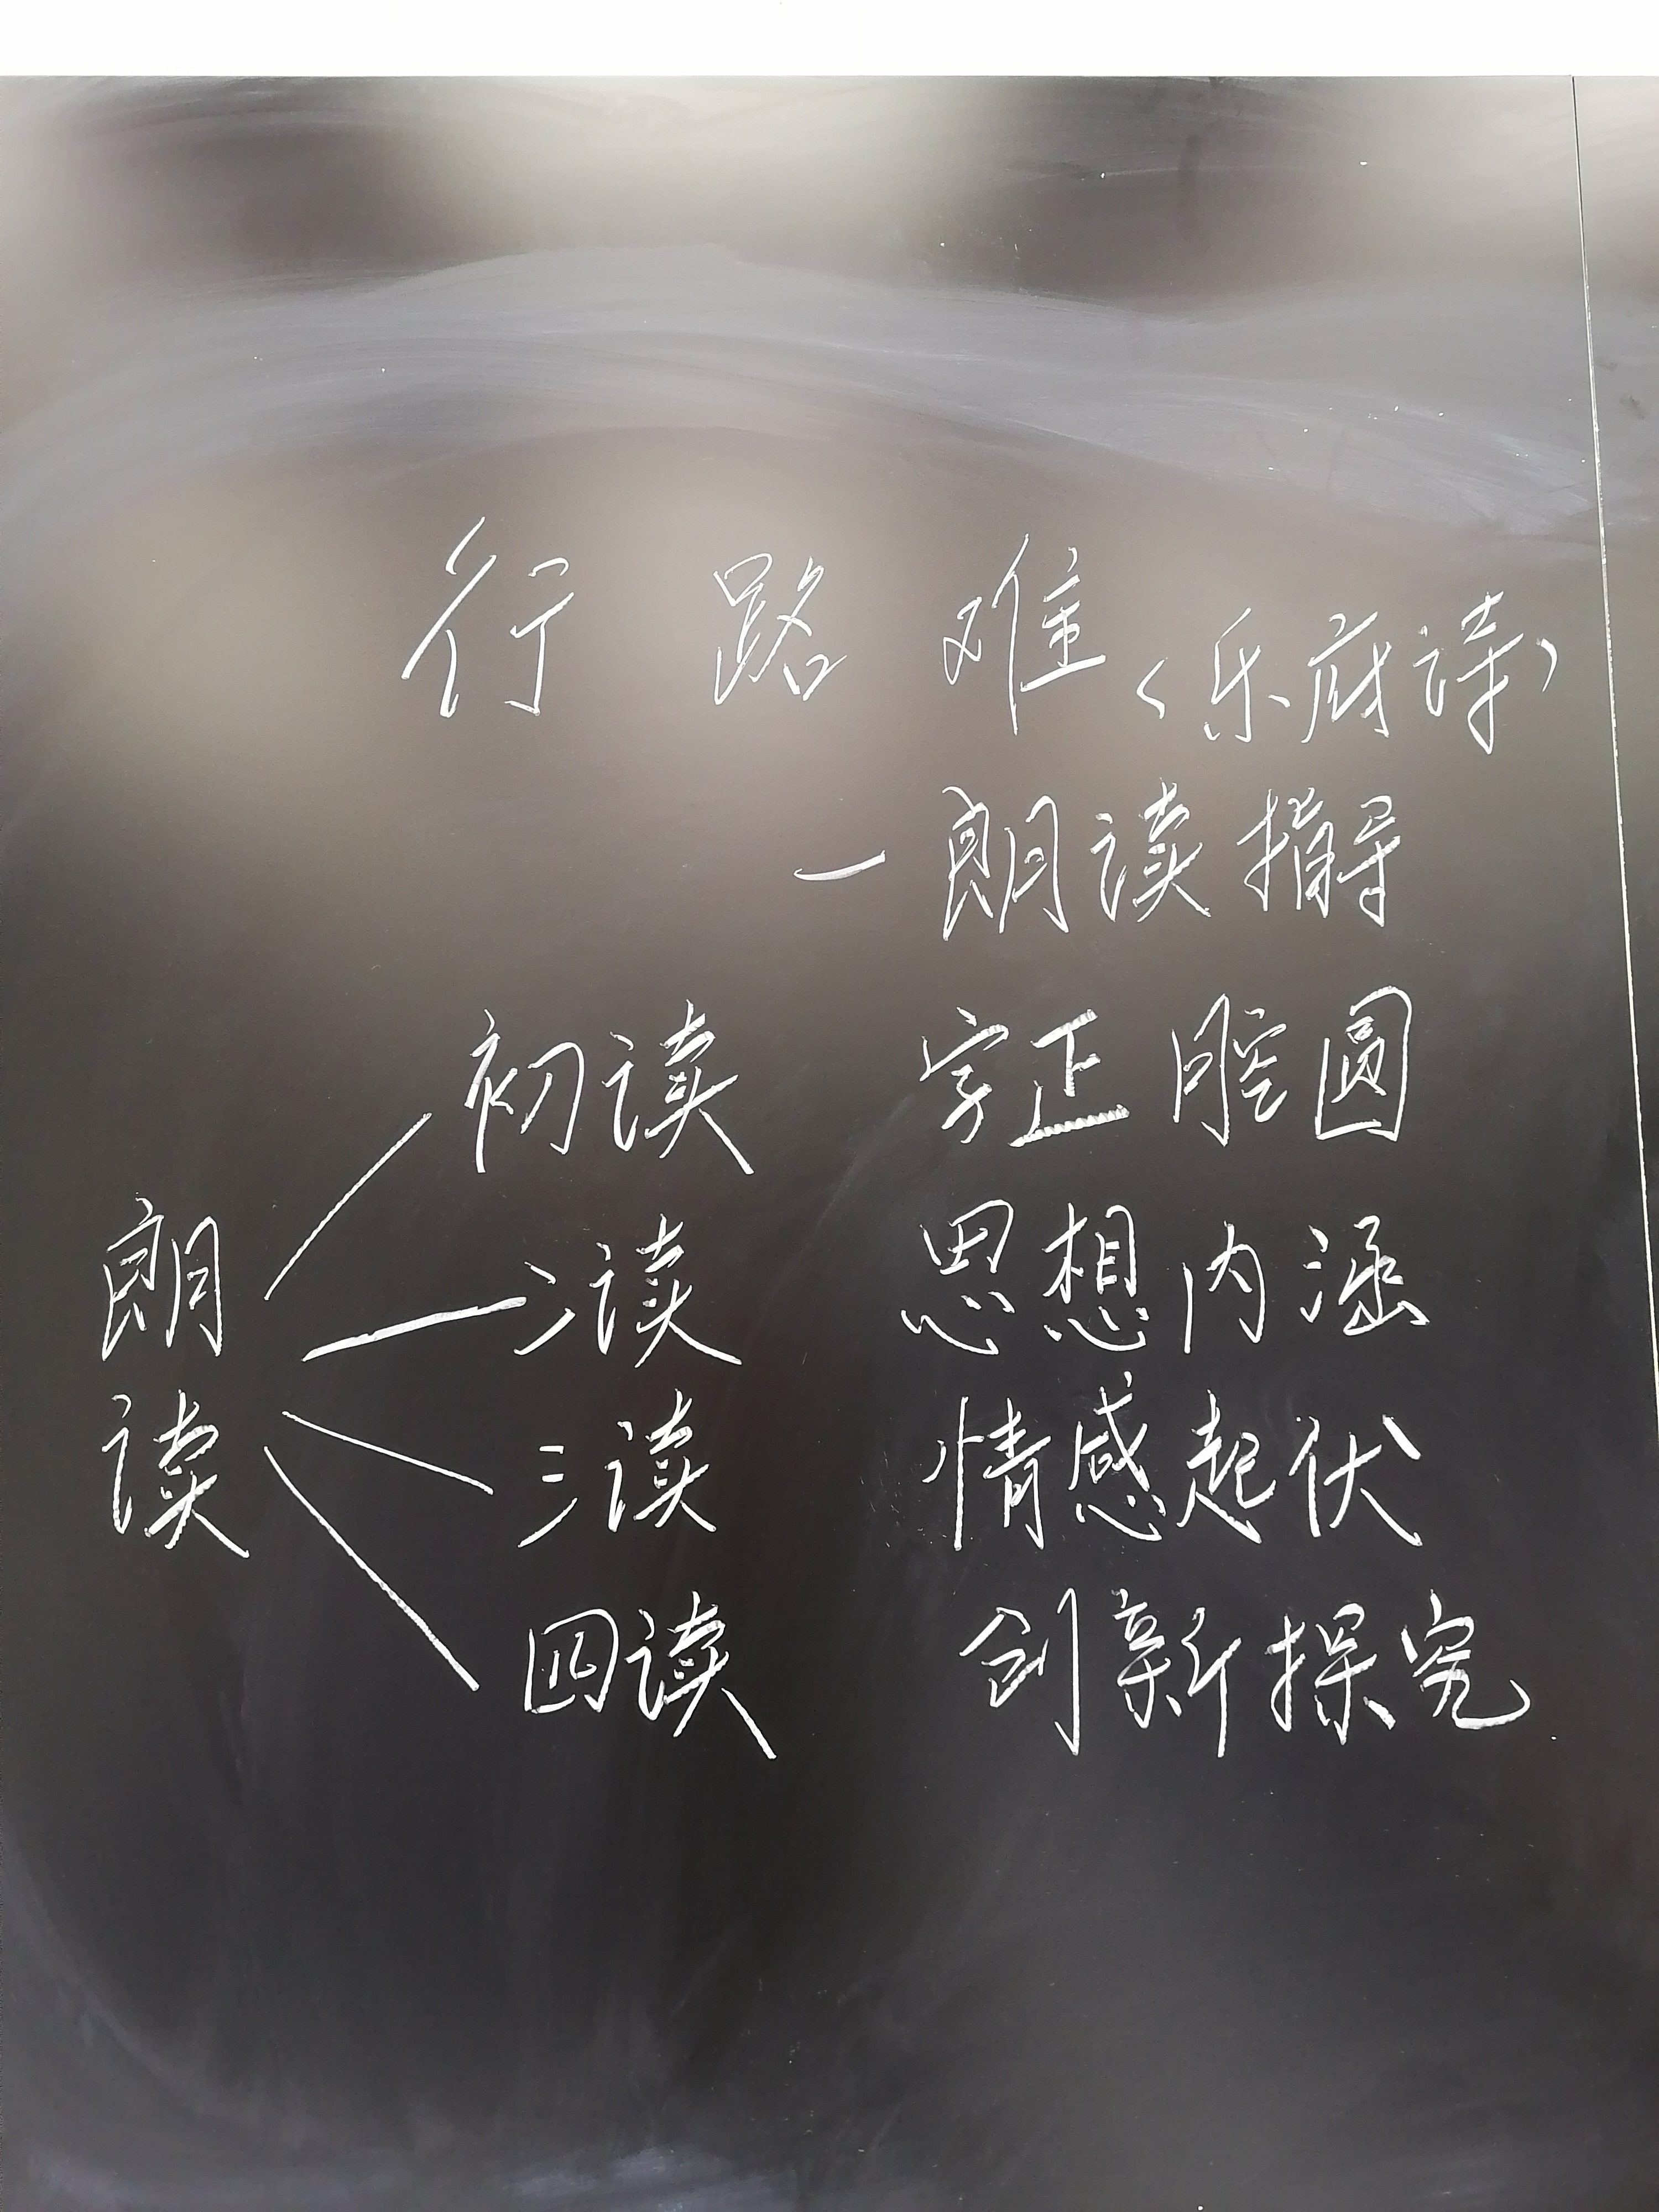 行路难(乐府诗)
—朗读指导
朗读
初读 字正腔圆
二读 思想内涵
三读 情感起伏
四读 创新探究